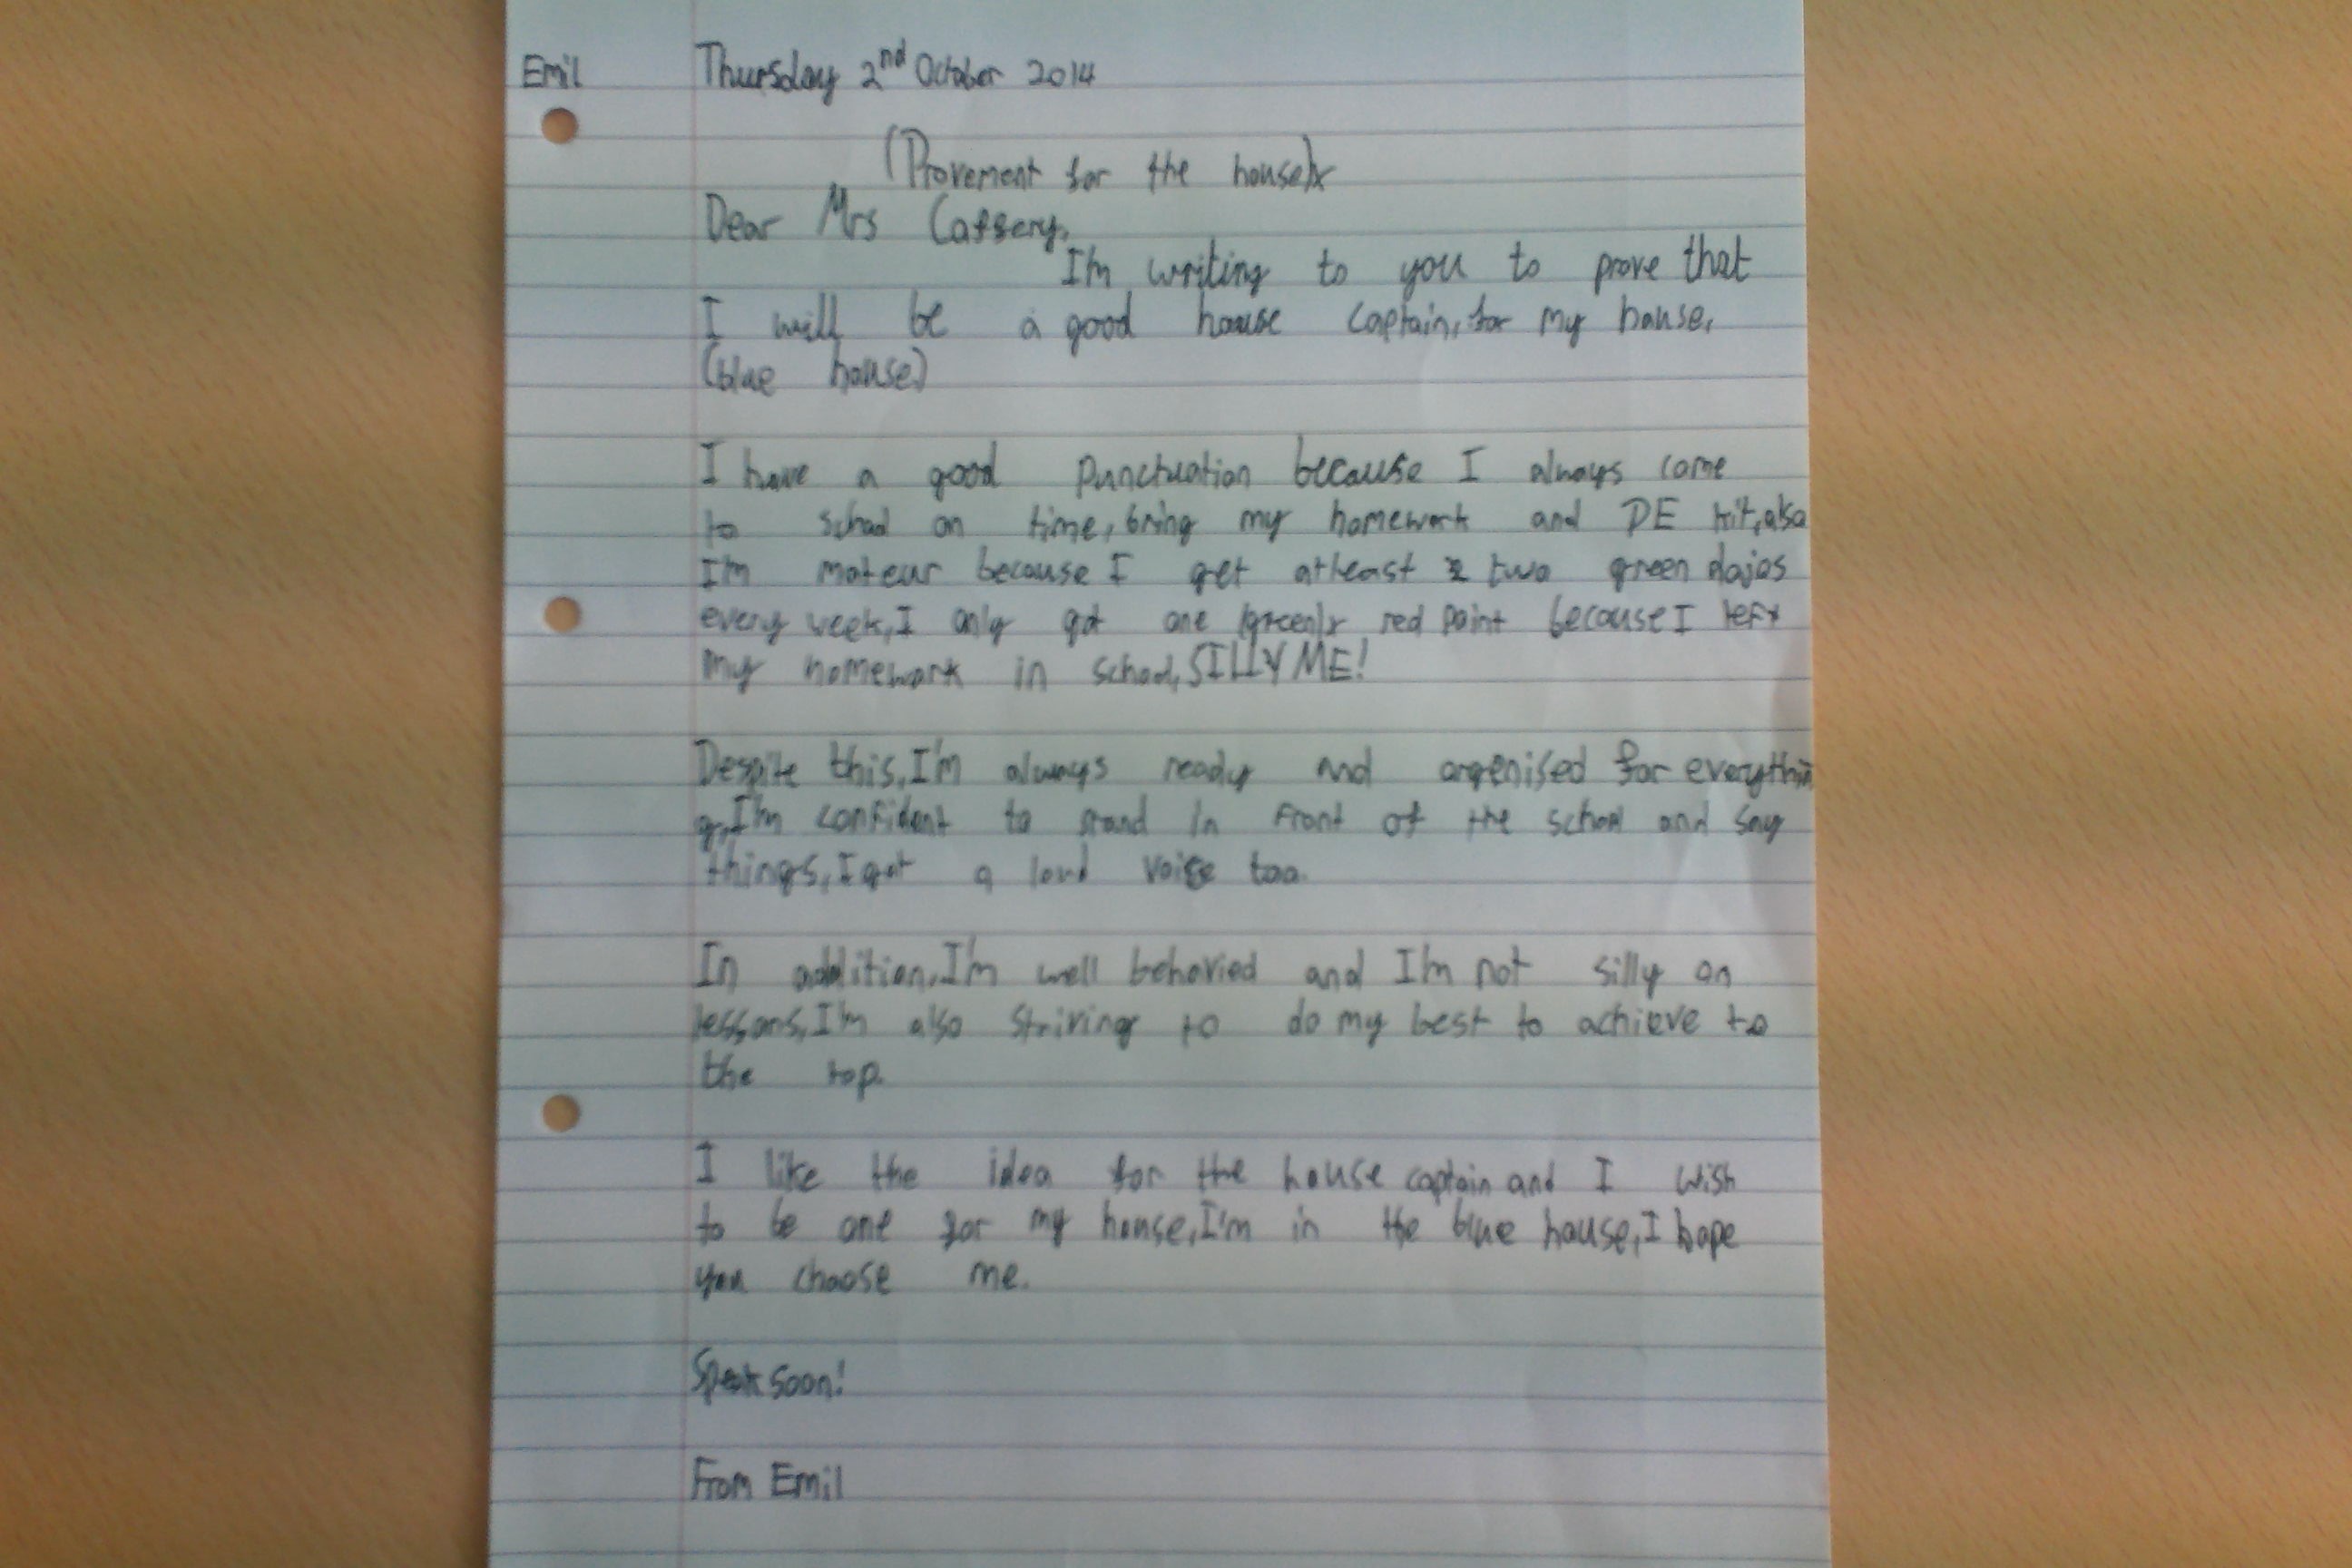 Emil Thursday 2nd October 2014
(Provement for the house)x
Dear Mrs Caffery,
I'm writing to you to prove that
I will be a good house captain, for my house,
(blue house)
I have a good punctuation because I always come
to school on time, bring my homework and PE kit, also
I'm mateur because I get atleast two green dojos
every week, I only got one (green)x red point because I left
my homework in school, SILLY ME!
Despite this, I'm always ready and orgenised for everythin
g, I'm confident to stand in front of the school and say
things, I got a loud voice too.
In addition, I'm well behavied and I'm not silly on
lessons, I'm also striving to do my best to achieve to
the top.
I like the idea for the house captain and I wish
to be one for my house, I'm in the blue house, I hope
you choose me.
Speak soon!
From Emil